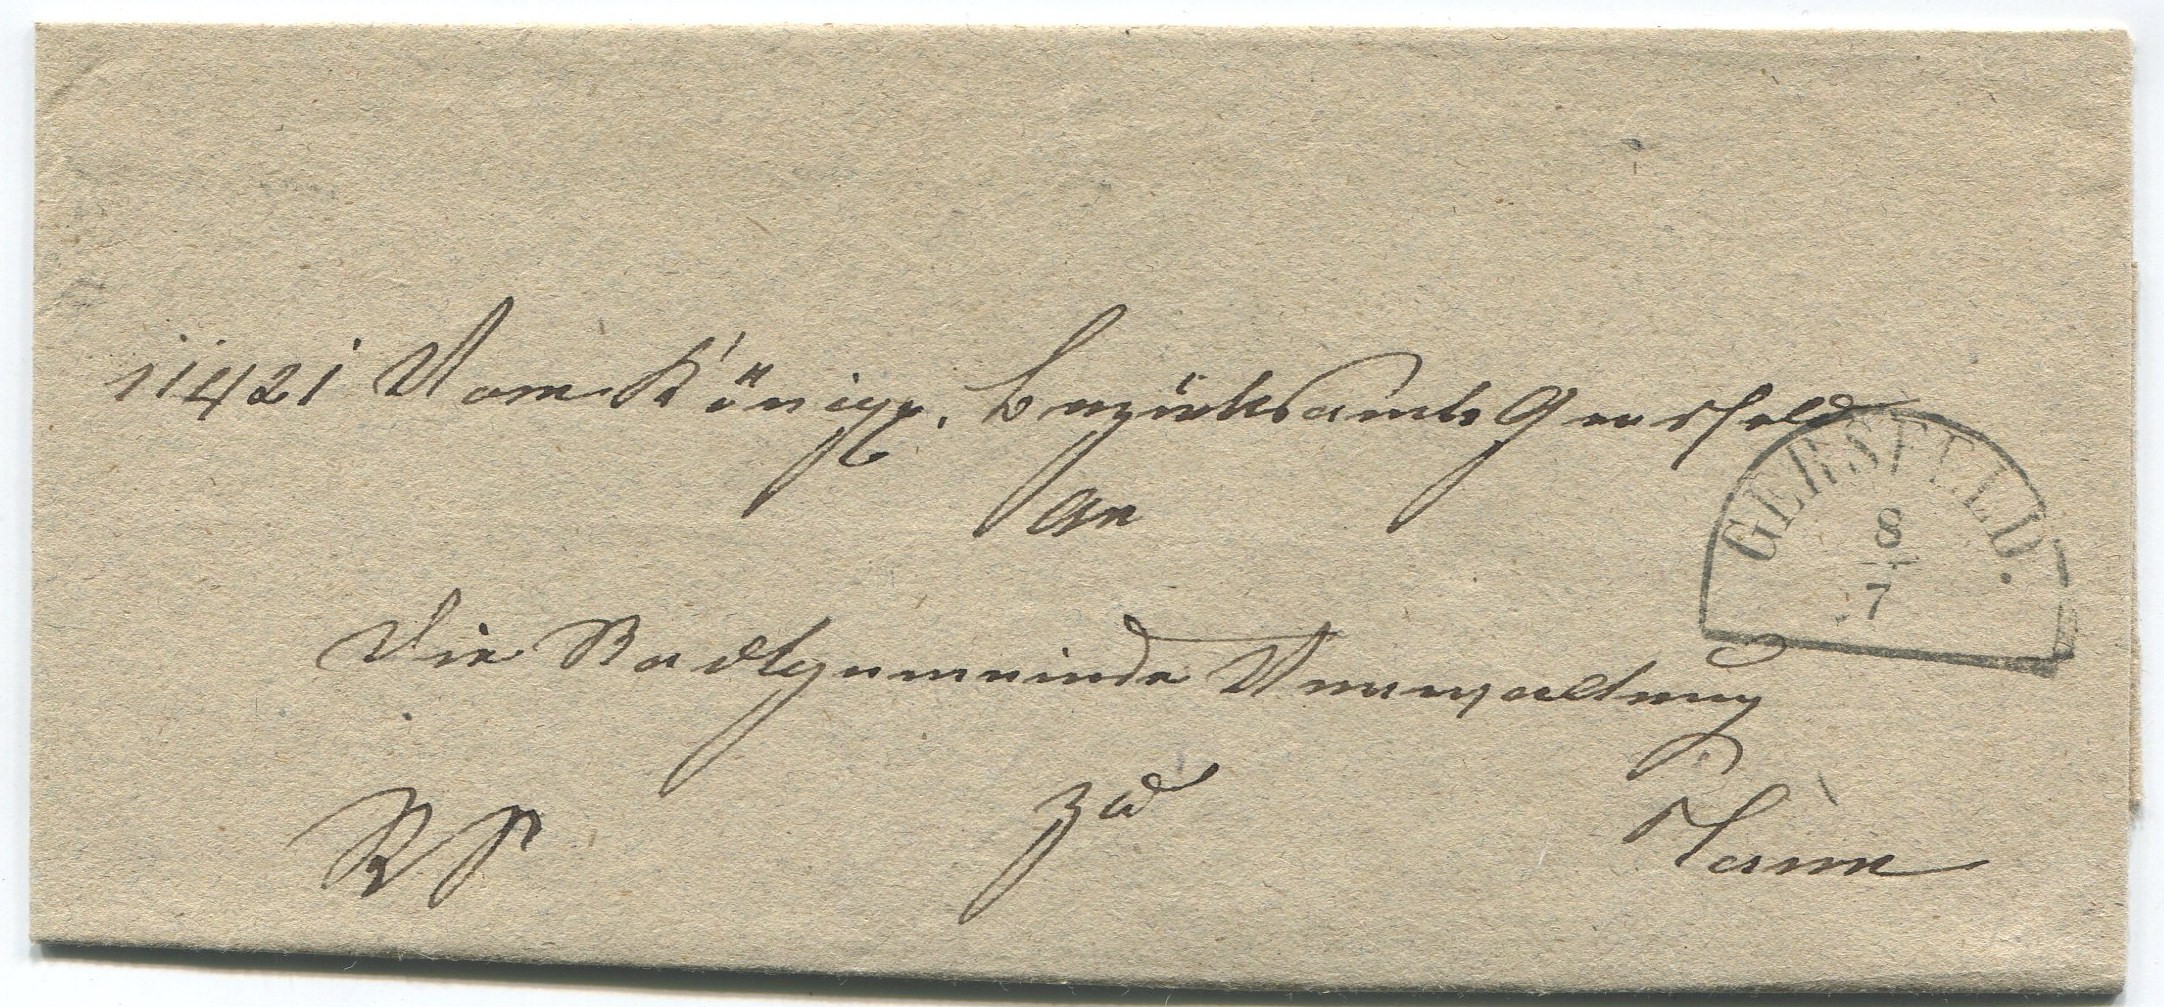 11421 Vom Königl. Bezirksamte Gersfeld
An
GERSFELD.
8
7
Die Stadtgemeinde Verwaltung
RS zu Tann